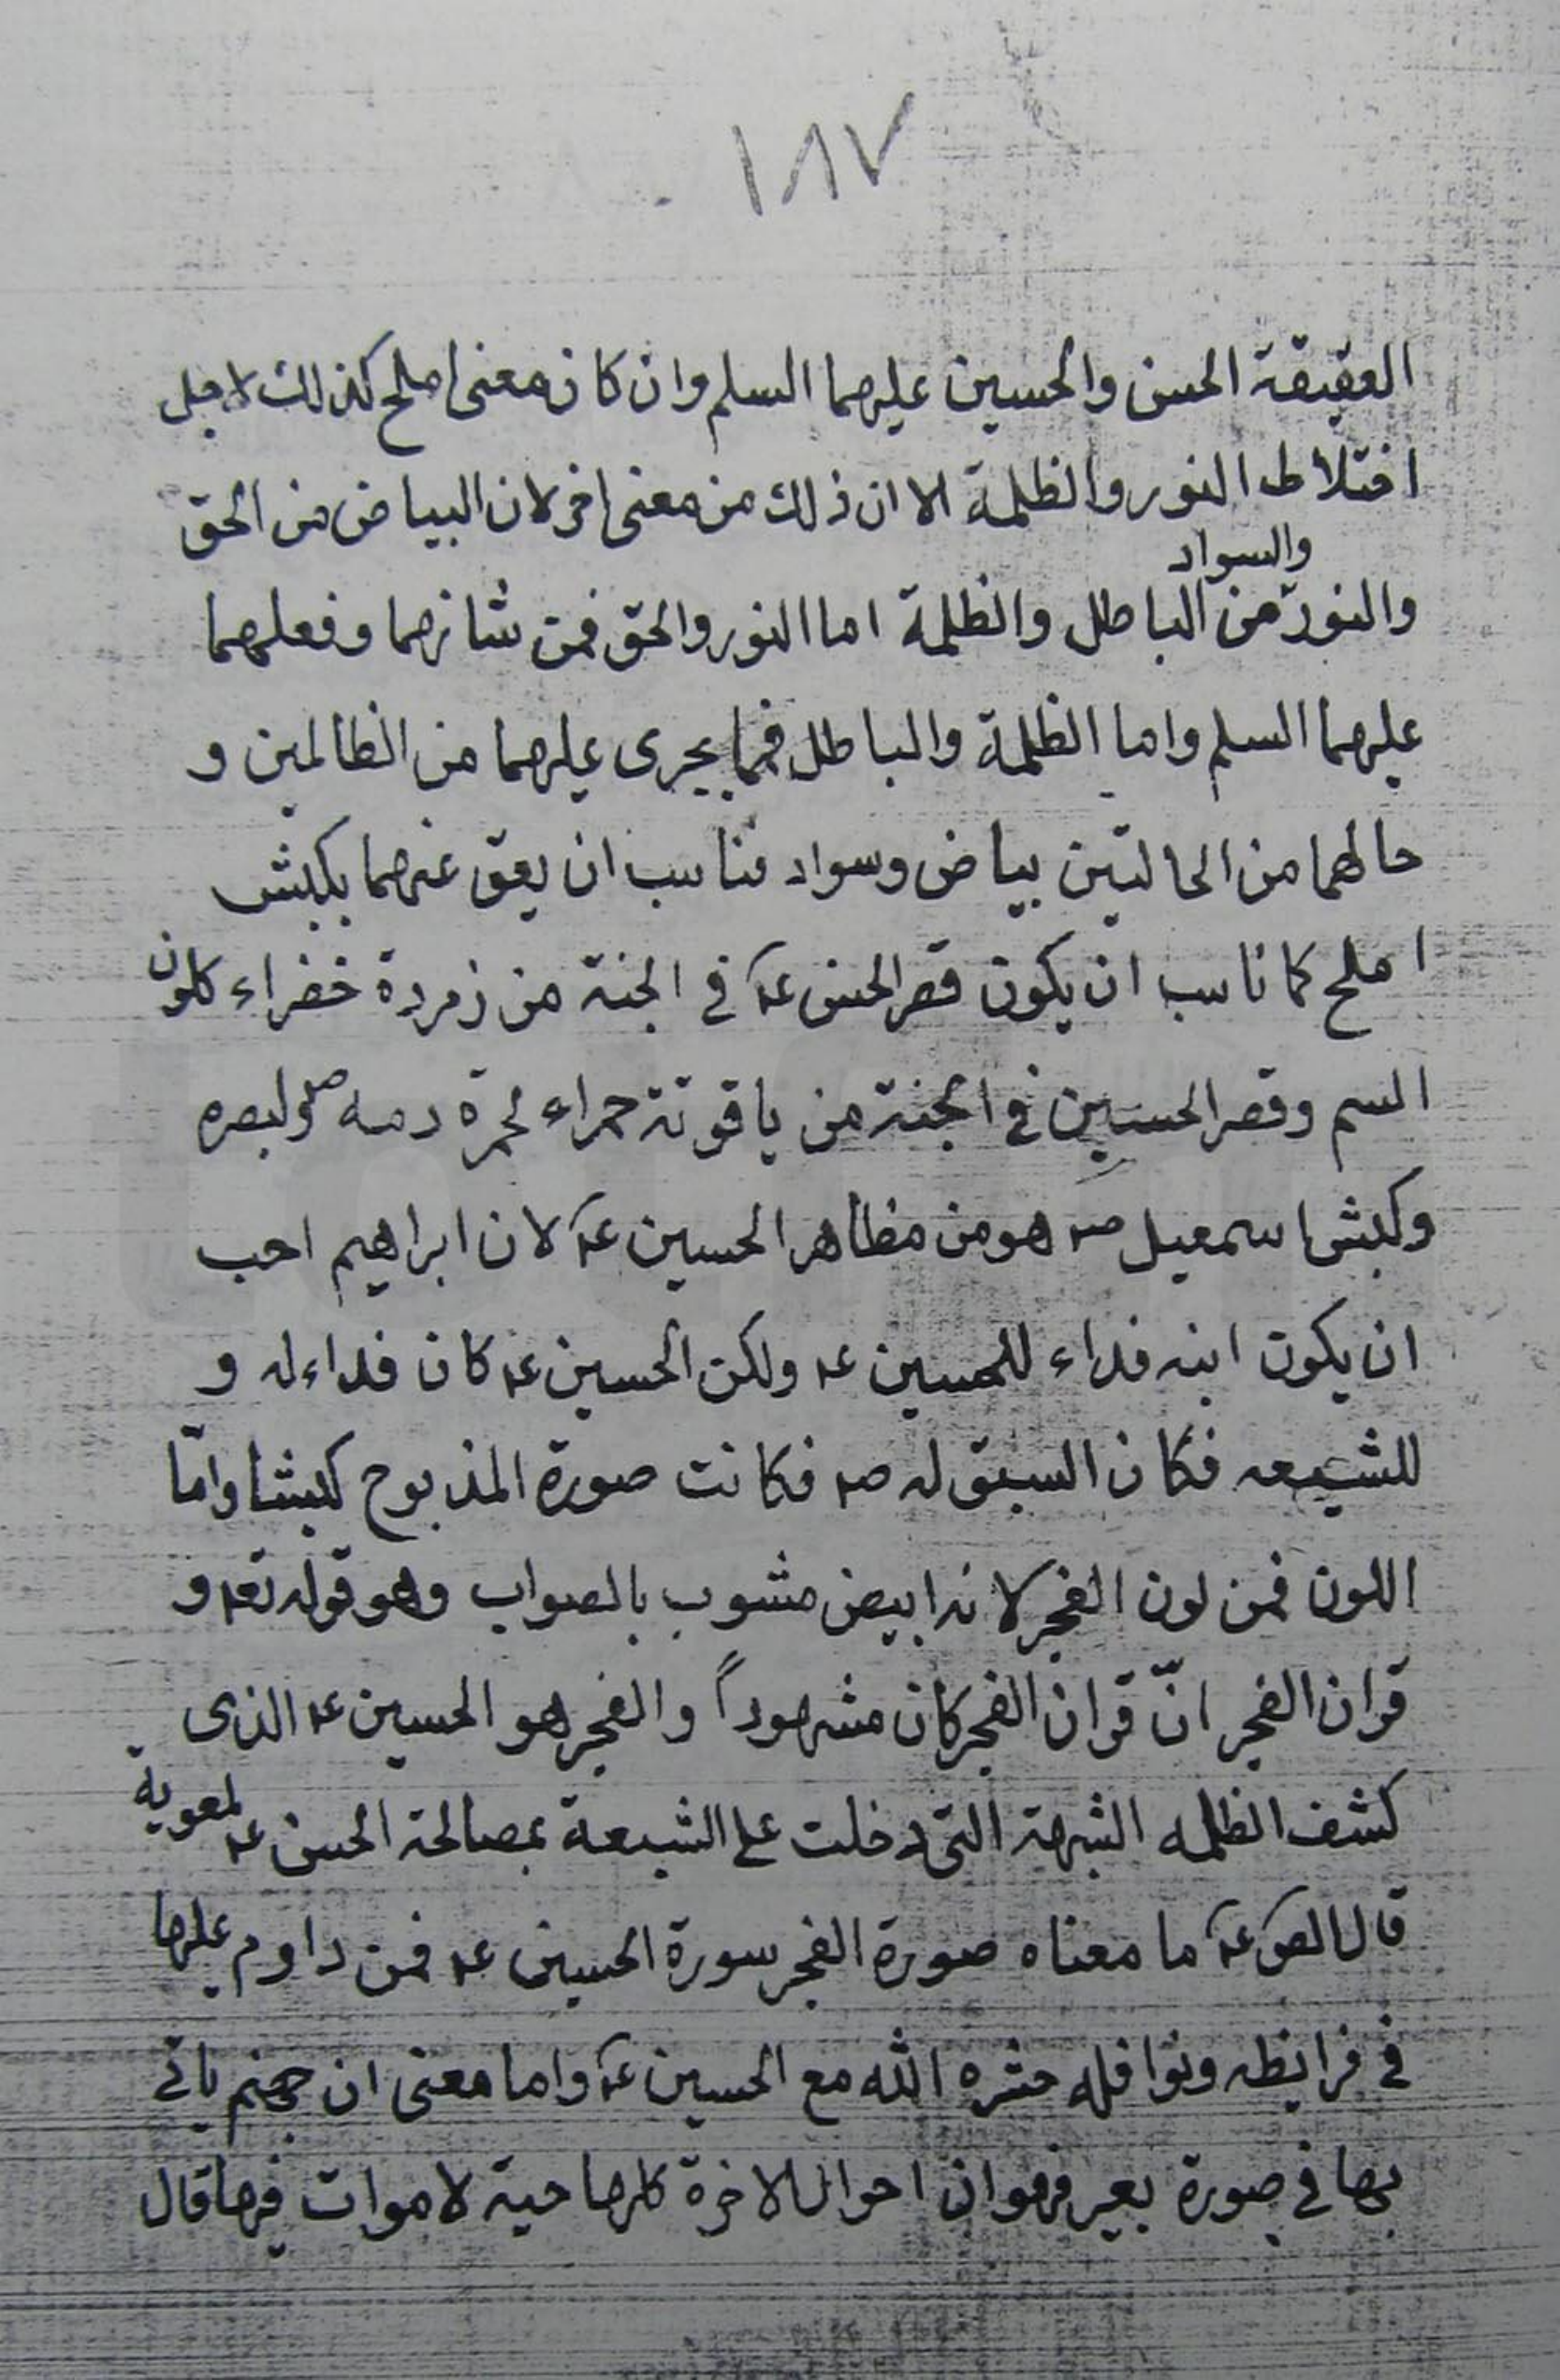 ١٨٧
العقيقة الحسن والحسين عليهما السلم وان كان معنى املح كذلك لاجل
اختلاط النور والظلمة الا ان ذلك من معنى اخر لان البياض من الحق
والسواد
والنور من الباطل والظلمة اما النور والحق فمن شانهما وفعلهما
عليهما السلم واما الظلمة والباطل فيما يجرى عليهما من الظالمين و
حالهما من الحالتين بياض وسواد فناسب ان يعق عنهما بكبش
املح كما ناسب ان يكون قصر الحسن عه في الجنة من زمردة خضراء كلون
السم وقصر الحسين في الجنة من ياقوتة حمراء لحمرة دمه
وكبش اسمعيل صه هو من مظاهر الحسين عه لان ابراهيم احب
ان يكون ابنه فداء للحسين عه ولكن الحسين عه كان فداء له و
للشيعه فكان السبق له صه فكانت صورة المذبوح كبشا وامّا
اللون فمن لون الفجر لانه ابيض مشوب بالصواب وهو قوله تعه و
قران الفجر انّ قران الفجر كان مشهوداً والفجر هو الحسين عه الذى
كشف الظلمه الشبهة التى دخلت على الشيعة بمصالحة الحسن عه لمعوية
قال الصَ عه ما معناه صورة الفجر سورة الحسين عه فمن داوم عليها
في فرايظه ونوافله حشره الله مع الحسين عه واما معنى ان جهنم ياتى
بها في صورة بعير فهو ان احوال الاخرة كلها حية لاموات فيها قال